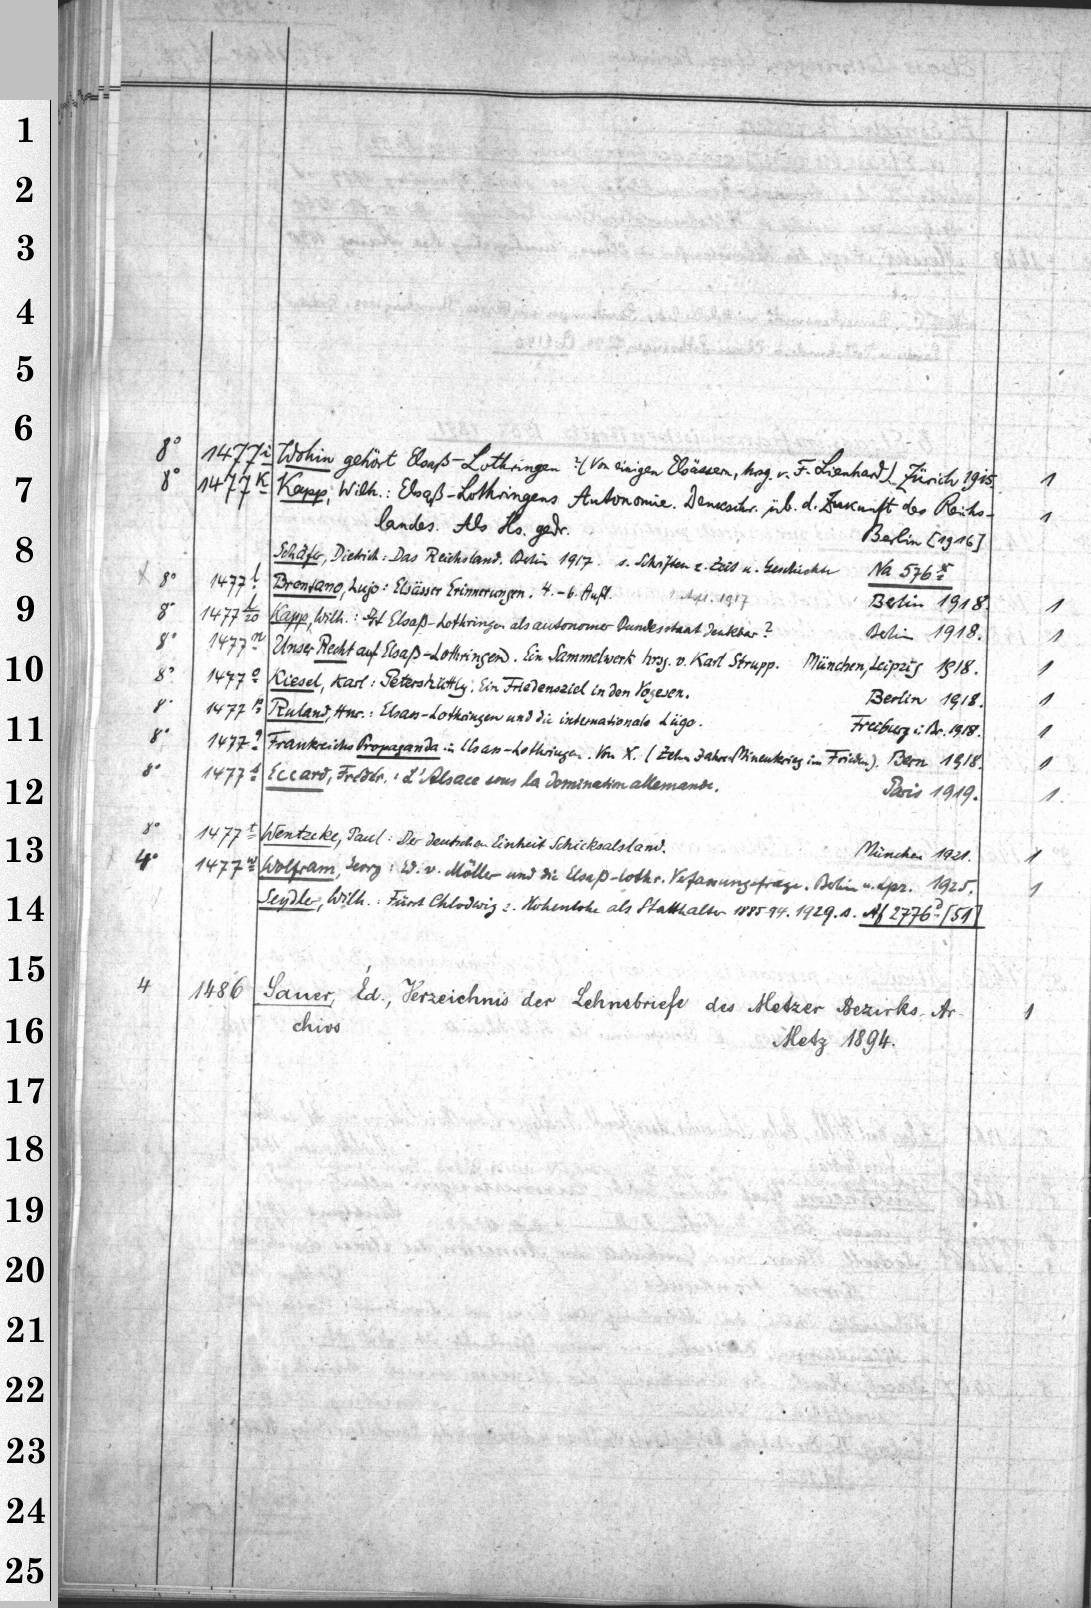 1
2
3
4
5
6
8° 1477 i Wohin gehört Elsaß-Lothringen? (Von einigen Elsässern, hrsg. v. F. Lienhard). Zürich 1915 1
7
8° 1477 k Kapp, Wilh.: Elsaß-Lothringens Autonomie. Denkschr. üb. d. Zukunft des Reichs-
landes. Als Hs. gedr. Berlin [1916] 1
8
Schäfer, Dietrich: Das Reichsland. Berlin 1917. s. Schriften z. Zeit u. Geschichte Na 576
8° 1477 l Brentano, Lujo: Elsässer Erinnerungen. 4.-6. Aufl. 1917 Berlin 1918. 1
9
8° 1477 Kapp, Wilh.: Ist Elsaß-Lothringen als autonomer Bundesstaat denkbar? Berlin 1918. 1
8° 1477 m Unser Recht auf Elsaß-Lothringen. Ein Sammelwerk hrsg. v. Karl Strupp. München, Leipzig 1918. 1
10
8° 1477 o Kiesel, Karl: Petershüttly. Ein Friedensziel in den Vogesen. Berlin 1918. 1
8° 1477 p Ruland, Hnr.: Elsass-Lothringen und die internationale Lüge. Freiburg i. Br. 1918. 1
11
8° 1477 q Frankreichs Propaganda in Elsass-Lothringen. Von X. (Zehn Jahre Minenkrieg im Frieden). Bern 1918. 1
8° 1477 Eccard, Frédér.: L'Alsace sous la domination allemande. Paris 1919. 1.
12
8° 1477 t Wentzcke, Paul: Der deutschen Einheit Schicksalsland. München 1921. 1
13
4° 1477 w Wolfram, Georg: Ed. v. Möller und die Elsaß-Lothr. Verfassungsfrage. Berlin u. Lpz. 1925. 1
14
Seydler, Wilh.: Fürst Chlodwig z. Hohenlohe als Statthalter 1885-94. 1929. s. Af 2776 d [51]
15
4 1486 Sauer, Éd., Verzeichnis der Lehnsbriefe des Metzer Bezirks-Ar- 1
16
chivs Metz 1894.
17
18
19
20
21
22
23
24
25